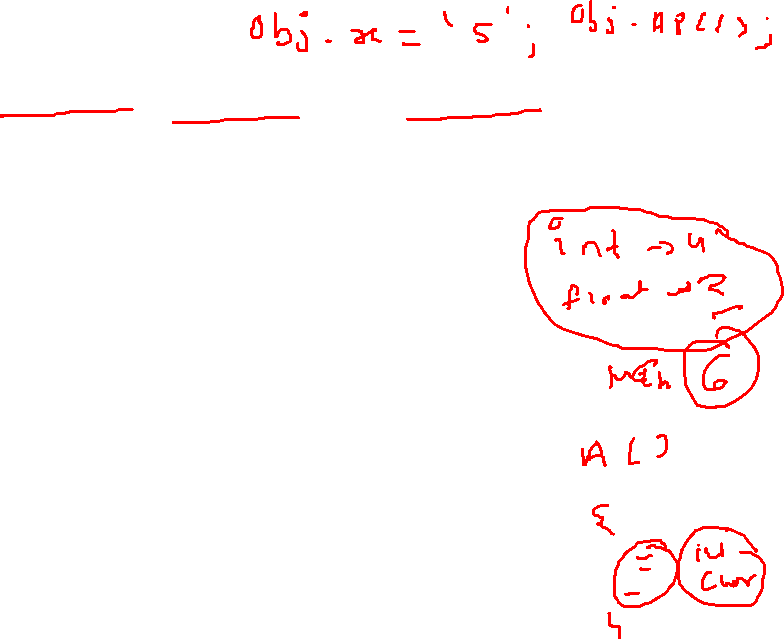 obj.x = '5'; obj.AP();
int → 4
float → 2
Mem 6
A()
{
int
char
}